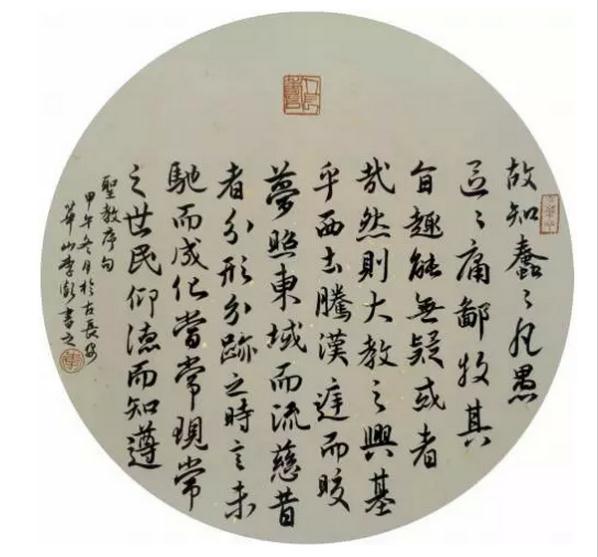 故知蠢〻凡愚
區〻庸鄙投其
旨趣能無疑或者
哉然則大教之興基
乎西土騰漢庭而皎
夢照東域而流慈昔
者分形分跡之時言未
馳而成化當常現常
之世民仰德而知遵
聖教序句
甲午冬月於古長安
華山李書之
李